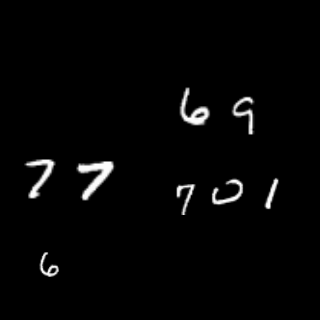 6 9
7 7
7 0 1
6